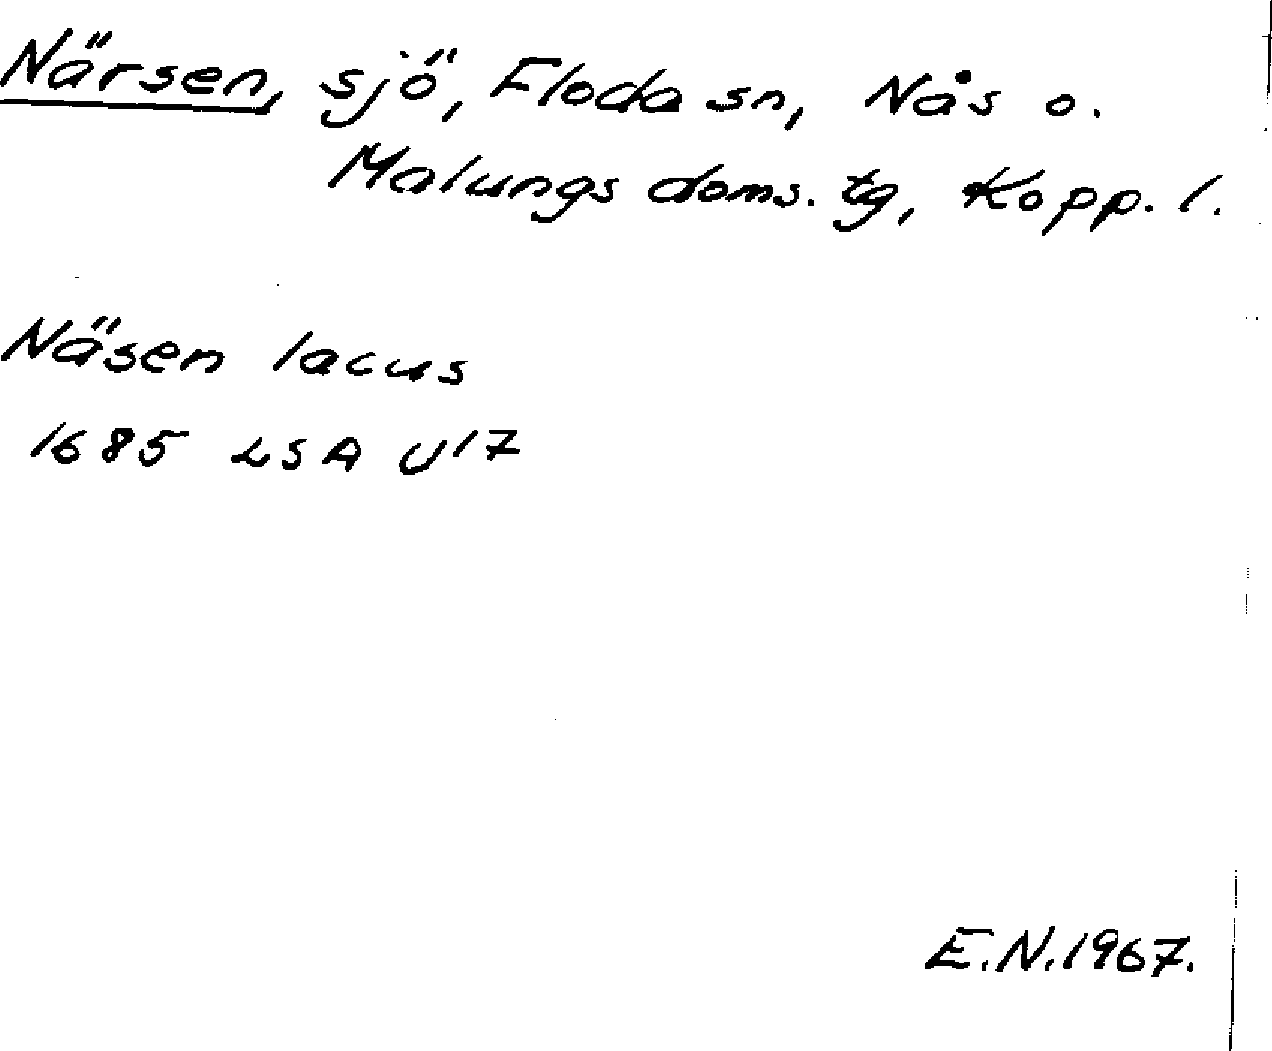 Närsen, sjö, Floda sn, Nås o.
Malungs doms. tg, Kopp. l.
Näsen lacus
1685 LSA U17
E.N.1967.